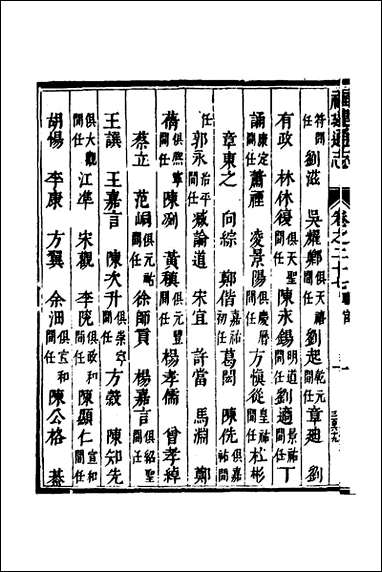 福建通志 卷之二十七 職官
符閒任 劉滋 吳耀卿 俱天禧閒任 劉起 乾元閒任 章廸 劉
有政 林休復 俱天聖閒任 陳永錫 明道閒任 劉適 景祐閒任 丁
誦 康定閒任 蕭 凌景陽 俱慶曆閒任 方慎從 皇祐閒任 杜彬
章東之 向綜 鄭偕 嘉祐初任 葛閎 陳侁 俱嘉祐閒
任 郭永 治平閒任 臧論道 宋宜 許當 馬淵 鄭
蒨 俱熙寧閒任 陳洌 黃積 俱元豐閒任 楊孝儒 曾孝綽
蔡立 范峒 俱元祐閒任 徐師貢 楊嘉言 俱紹聖閒任
王譔 王嘉言 陳次升 俱崇寧閒任 方㲄 陳知先
俱大觀閒任 江凖 宋觀 李院 俱政和閒任 陳顯仁 宣和閒任
胡惕 李康 方巽 余沺 俱宣和閒任 陳公格 綦